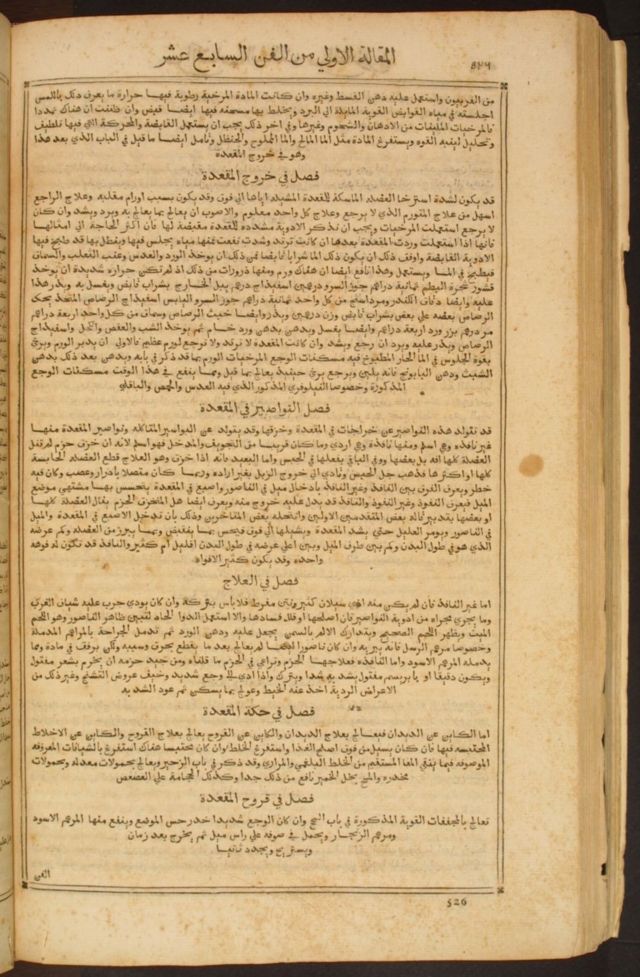 المقالة الاولي من الفن السابع عشر
٥٢٦
من الفربيون واستعمل عليه دهن القسط وغيره وان كانت المادة المرخية رطوبة فيها حرارة ما يعرف ذلك باللمس
اجلسته في مياه القوابض القوية المايلة الي البرد ويخلط بها مسخنه فيها ايضا قبض وان ظننت ان هناك تمددا
فالمرخيات المليفات من الادهان والشحوم وغيرها وفي اخر ذلك يجب ان يستعمل القابضة والمحركة التي فيها تلطيف
وتحليل ليفيه القوه ويستفرغ المادة مثل الما المالح والما المملوح والحنظل وتامل ايضا ما قيل في الباب الذي بعد هذا
وهو في خروج المقعدة
فصل في خروج المقعدة
قد يكون لشدة استرخا العضله الماسكة للمقعدة المشيله اياها الي فوق وقد يكون بسبب اورام مقلبه وعلاج الراجع
اسهل من علاج المتورم الذي لا يرجع وعلاج كل واحد معلوم والاصوب ان يعالج بما يعالج به ويرد ويشد وان كان
لا يرجع استعملت المرخيات ويجب ان نذكر الادوية مشدده للمقعدة مقبضة لها فان اكثر الحاجة الي امثالها
فانها اذا استعملت وردت المقعدة بعدها ان كانت ترتد وشدت نفعت فمنها مياه يجلس فيها وينطل بها قد طبخ فيها
الادوية القابضة واوفق ذلك ان يكون ذلك الما شرابا قابضا فمن ذلك ان يوخذ الورد والعدس وعنب الثعلب والسماق
فيطبخ في الما ويستعمل وهذا نافع ايضا ان هناك ورم ومنها ذرورات من ذلك اذ لم تكن حراره شديدة ان يوخذ
قشور شجرة البطم ثمانية دراهم جوز السرو درهمين اسفيداج درهم يبل الخارج بشراب قابض ويغسل به ويذر هذا
عليه وايضا دقاق الكندر ومرداسنج من كل واحد ثمانية دراهم جوز السرو اليابس اسفيداج الرصاص المتخذ يحك
الرصاص بعضه علي بعض بشراب قابض وزن درهمين ويذر وايضا خبث الرصاص وسماق من كل واحد اربعة دراهم
مر درهم بزر ورد اربعة دراهم وايضا يغسل ويدهن بدهن ورد خام ثم يوخذ الشب والعفص والكحل واسفيداج
الرصاص ويذر عليه ويرد ان رجع ويشد وان كانت المقعدة لا ترتد ولا ترجع لورم عظيم فالاولي ان يدبر الورم ويري
بقوة الجلوس في الما الحار المطبوخ فيه مسكنات الوجع المرخيات الورم بما قد ذكر في بابه ويدهن بعد ذلك بدهن
الشبث ودهن البابونج فانه يلين ويرجع يري حينيذ يعالج بما قيل ومما ينفع في هذا الوقت مسكنات الوجع
المذكورة وخصوصا القيلوفري المذكور الذي فيه العدس والحمص والباقلي
فصل النواصير في المقعدة
قد تتولد هذه النواصير عن خراجات في المقعدة وخرقها وقد يتولد عن البواسير المتاكله ونواصير المقعدة منها
غير نافذه وهي اسلم ومنها نافذة وهي اردي وما كان قريبا من التجويف والمدخل فهو اسلم لانه ان خرق حزم لم تنل
العضلة كلها افه بل بعضها ووفي الباقي بفعلها في الحبس واما البعيد فانه اذا خرق وهو العلاج قطع العضله الحابسة
كلها او اكثرها فذهب جل الحبس وتادي الي خروج الزبل بغير ارادة وربما كان متصلا باورار وعصب وكان فيه
خطر ويعرف الفرق بين النافذ وغير النافذ بادخال ميل في الناصور واصبع في المقعدة يتحسس بها منتهي موضع
الميل فيعرف النفوذ وغير النفوذ والنافذ قد يدل عليه خروج منه ويعرف ايضا هل المنخرق الحزم ينال العضلة كلها
او بعضها بتدبير قاله بعض المتقدمين الاولين واتتحله بعض المتاخرين وذلك بان تدخل الاصبع في المقعدة والميل
في الناصور ويومر العليل حتي يشد المقعدة ويشيلها الي فوق فيحس بما ينقبض وبما يبرز من العضله وكم عرضه
الذي هو في طول البدن وكم بين طرف الميل وبين اعلي عرضه في طول البدن اقليل ام كثير والنافذ قد تكون له فوهه
واحده وقد يكون كثير الافواه
فصل في العلاج
اما غير النافذ فان لم يكن منه اذي سيلان كثير ونتن مفرط فلا باس بتركه وان كان يوذي جرب عليه شياف الغرب
وما يجري مجراه من ادوية النواصير فان اصلحها او قلل فسادها والا استعمل الدوا الحاد لتبين ظاهر الناصور وهو اللحم
الميت ويظهر اللحم الصحيح ويتدارك الالم بالسمن يجعل عليه ودهن الورد ثم تدمل الجراحة بالمراهم المدملة
وخصوصا مرهم الرسل فانه يبريه وان كان ناصورا اليضا لم يعالج بعد ما يقطع بحرق وسبيه ولكي برفق في مادة وما
يدمله المرهم الاسود واما النافذه فعلاجها الحزم وتراعي في الحزم ما قلناه ومن جيد حزمه ان يحزم بشعر مفتول
ويكون دقيقا او بابريسم مفتول يشد به شدا ويترك واذا ادي الي وجع شديد وخيف عروض التشنج وغير ذلك من
الاعراض الرديه اخذ عنه الخيط وعولج بما يسكن ثم عود الشد به
فصل في حكة المقعدة
اما الكاين عن الديدان فيعالج بعلاج الديدان والكاين عن القروح يعالج بعلاج القروح والكاين عن الاخلاط
المحتبسه فيها فان كان يسيل من فوق اصلح الغذا واستفرغ الخلط وان كان محتبسا هناك استفرغ بالشيافات المعروفه
الموصوفه فيما ينقي المعا المستقيم من الخلط البلغمي والمراري وقد ذكر في باب الزحير ويعالج بحمولات معدله وبحمولات
مخدره والمسح بخل الخمير نافع من ذلك جدا وكذلك الحجامة علي العصعص
فصل في قروح المقعدة
تعالج بالمجففات القوية المذكورة في باب السحج وان كان الوجع شديدا خدر حس الموضع وينفع منها المرهم الاسود
ومرهم الزنجار ويحمل في صوفه علي راس ميل ثم يخرج بعد زمان
ويستريح ويجدد ثانيا
الفن
526